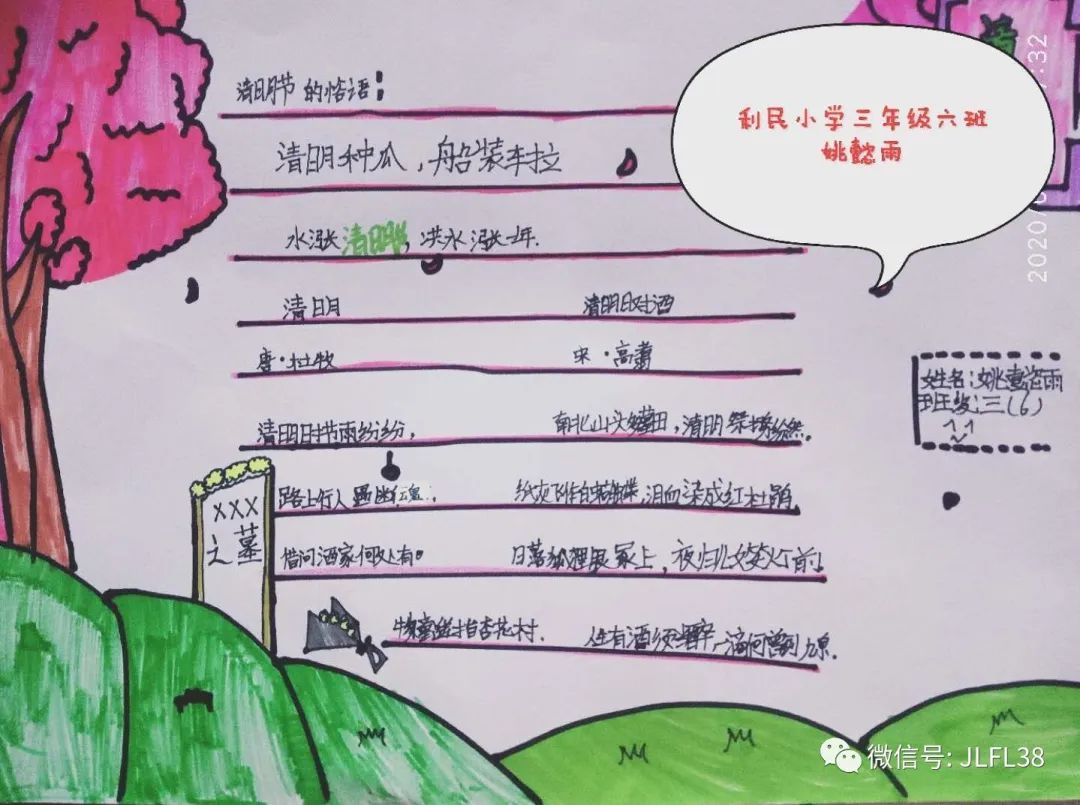 清明节的俗语:
清明种瓜，船装车拉
水涨清明，洪水涨一年.
清明
唐·杜牧
清明时节雨纷纷，
路上行人
借问酒家何处有。
牧童遥指杏花村.
清明日对酒
宋·高翥
南北山头多墓田，清明祭扫纷然。
纸灰飞作白蝴蝶，泪血染成红杜鹃。
日落狐狸眠冢上，夜归儿女笑灯前！
人生有酒须醉，一滴何曾到九泉.
XXX
之墓
利民小学三年级六班
姚懿雨
姓名:姚懿雨
班级:三(6)
2020/
:32
微信号: JLFL38